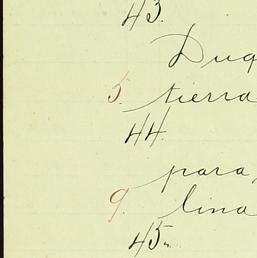 43.
Duq
5. tierra
44.
para,
9. lina
45.